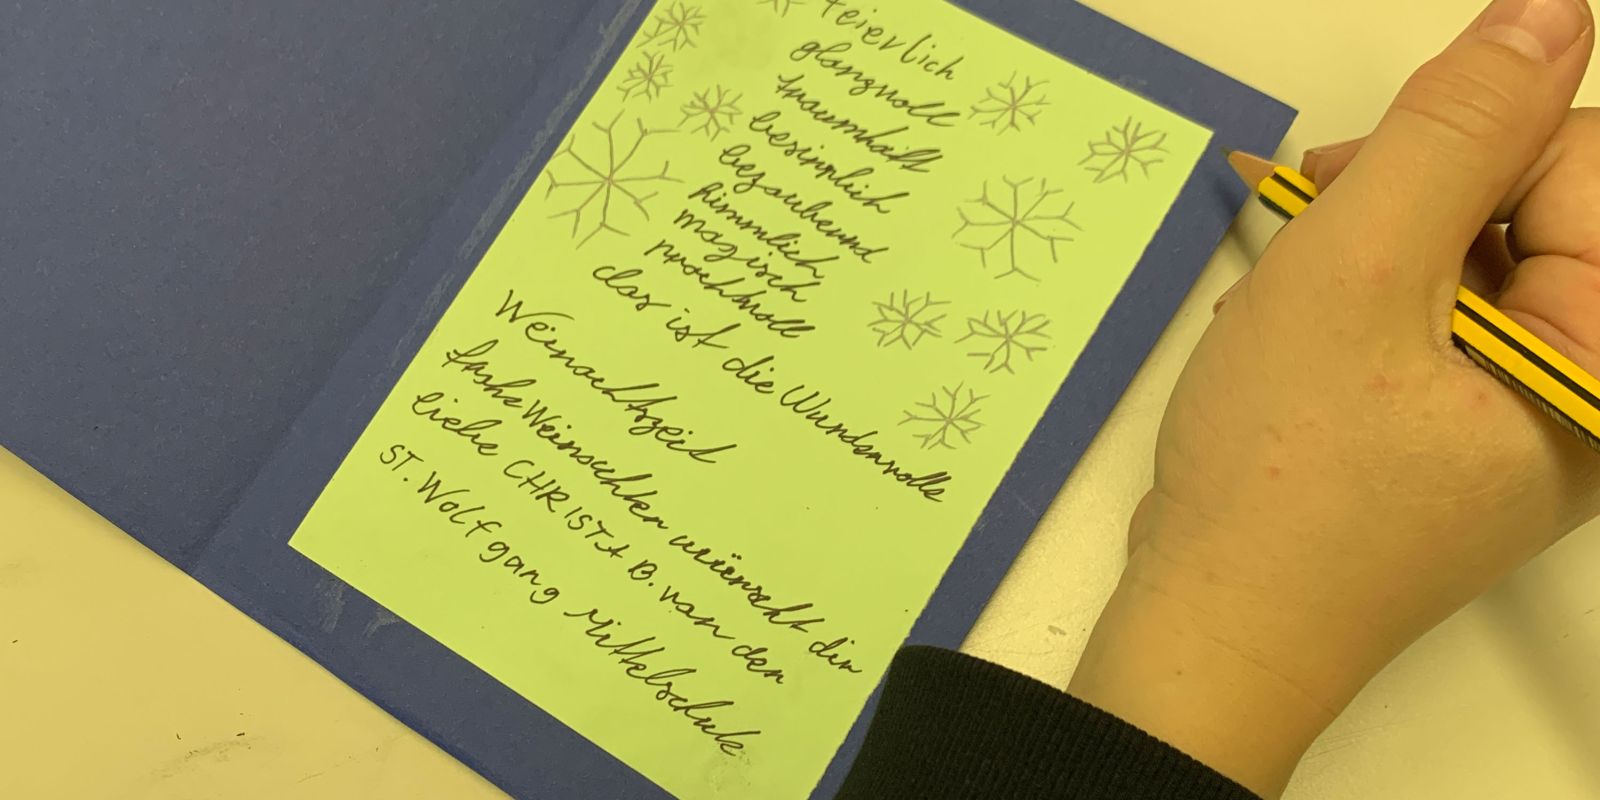 feierlich
glanzvoll
traumhaft
besinnlich
bezaubernd
himmlich
magisch
prachtvoll
das ist die Wundervolle
Weinachtszeit
frohe Weinachten wünscht dir
liebe CHRISTA B. von der
ST. Wolfgang Mittelschule